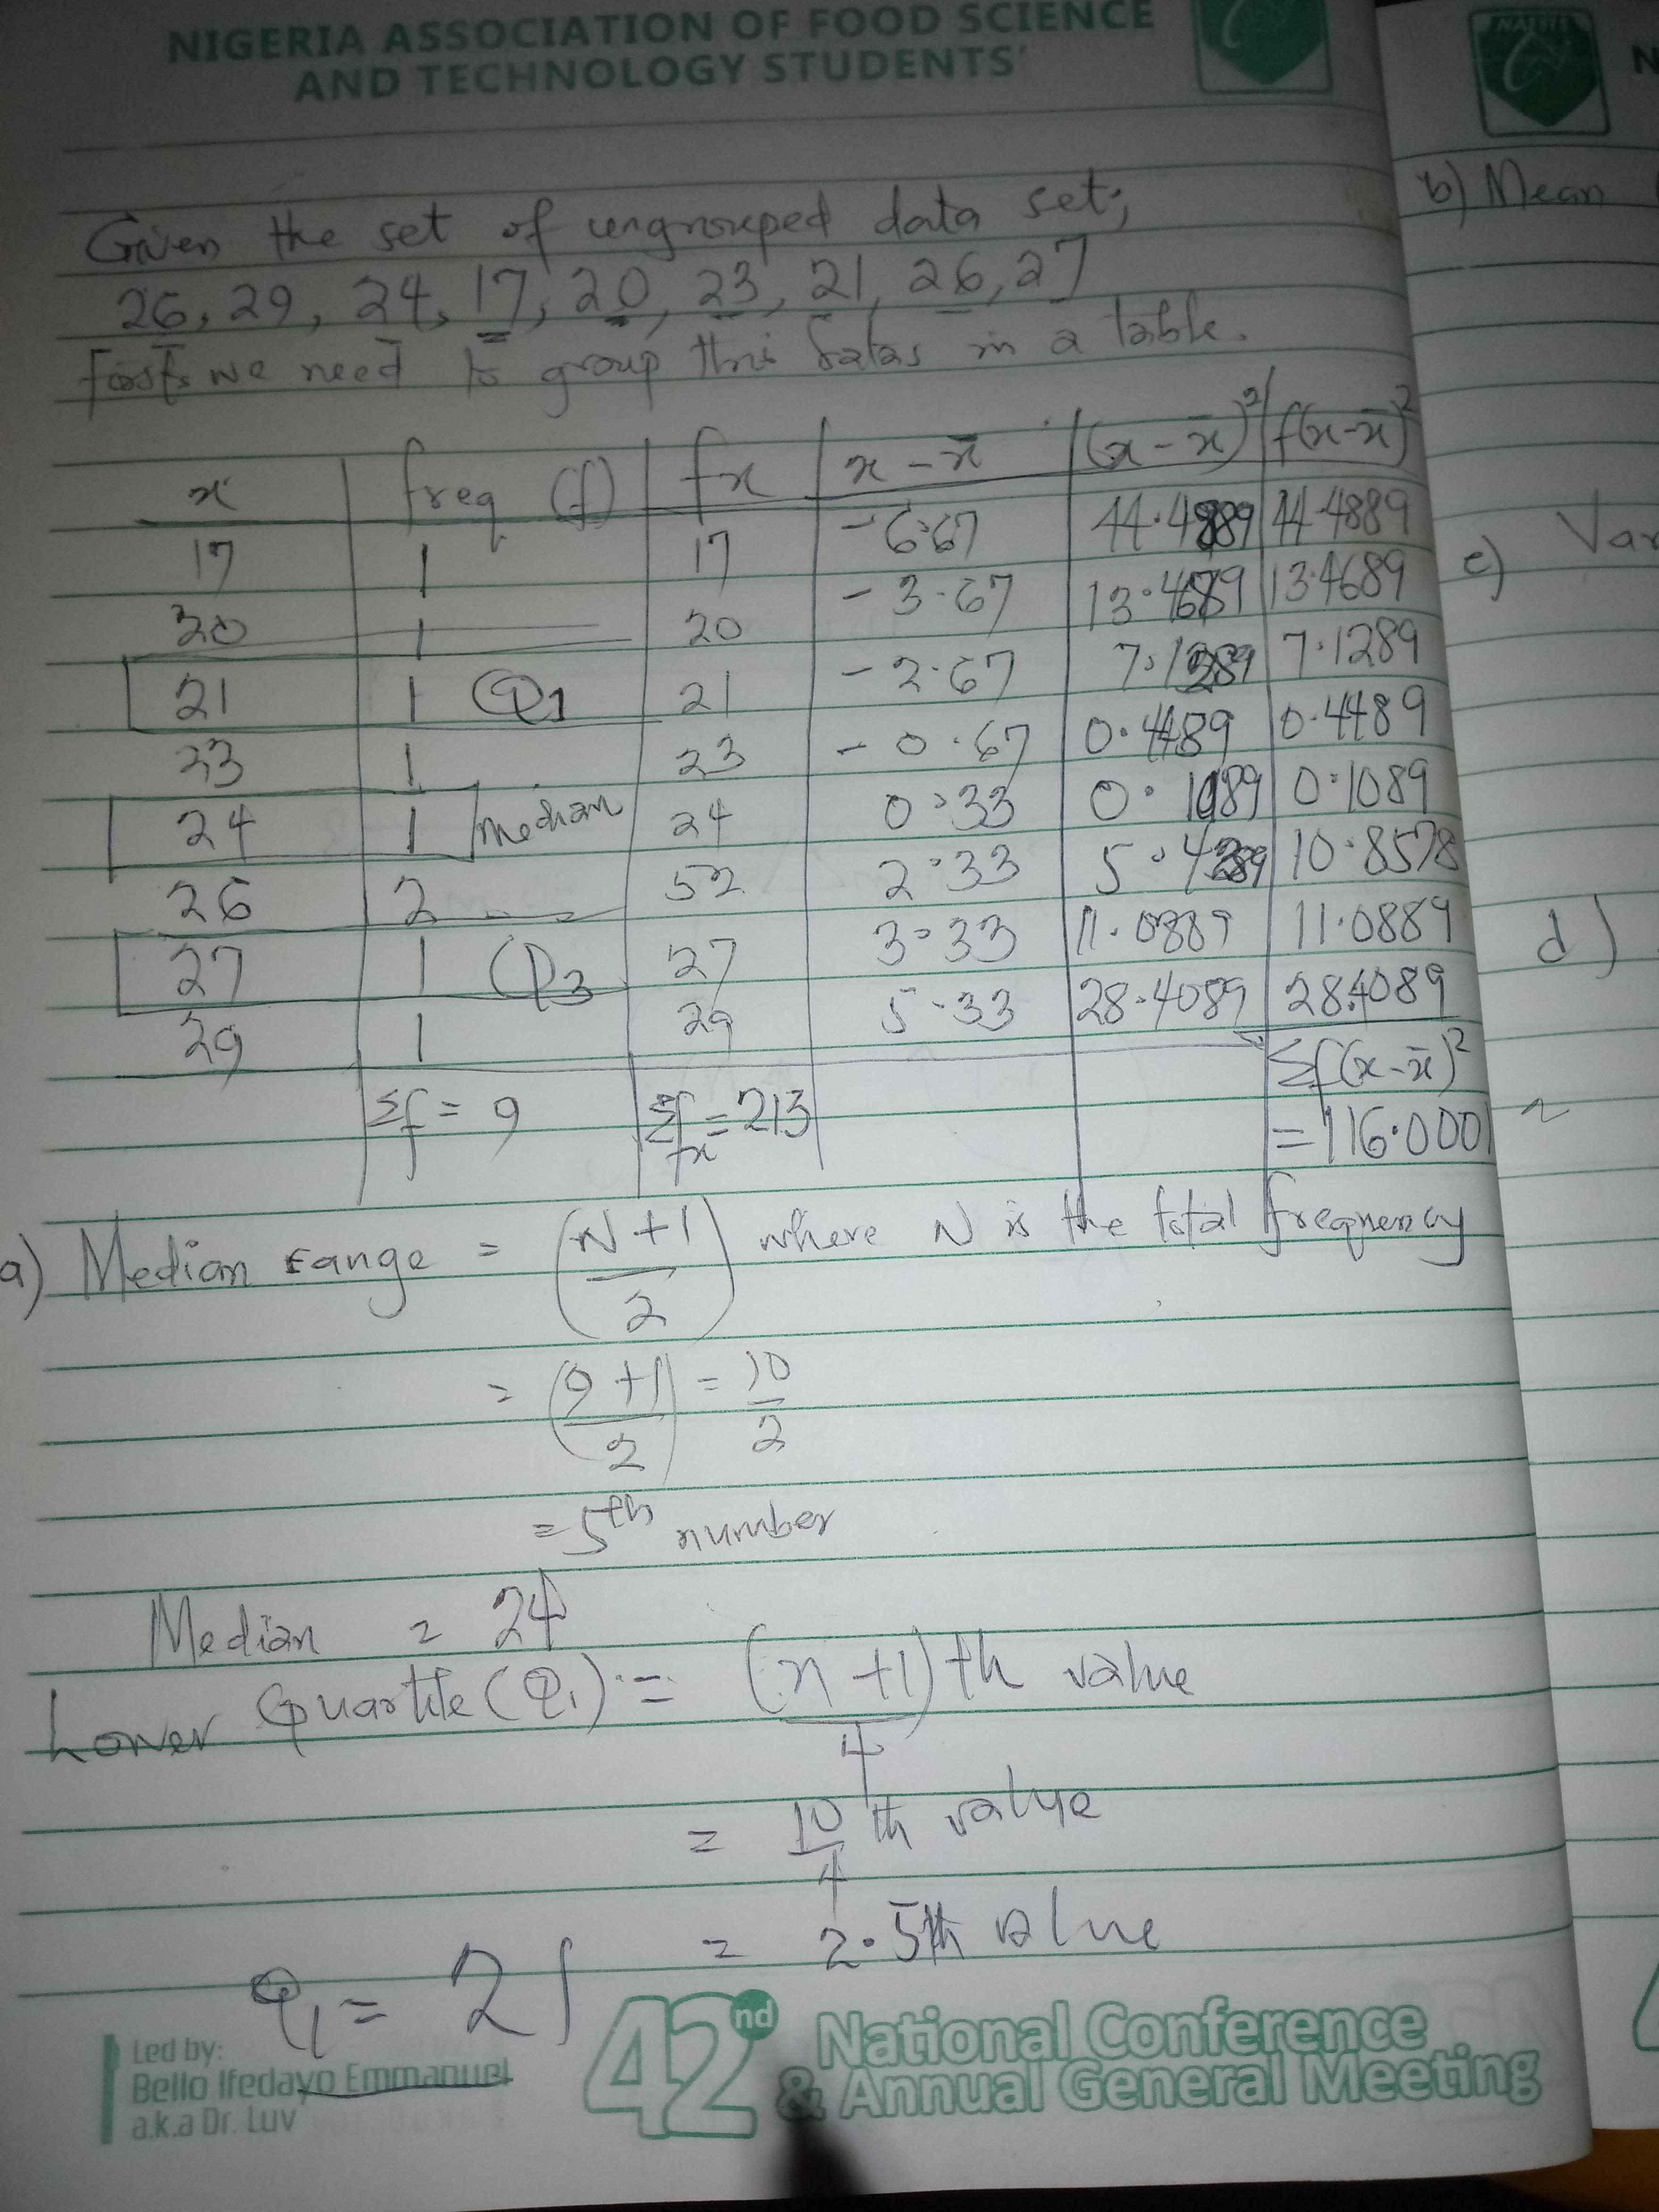 NIGERIA ASSOCIATION OF FOOD SCIENCE
AND TECHNOLOGY STUDENTS'
Given the set of ungrouped data set;
26, 29, 24, 17, 20, 23, 21, 26, 27
first we need to group this datas in a table.
x freq (f) fx x - x̄ (x - x̄)² f(x-x̄)²
17 1 17 -6.67 44.4889 44.4889
20 1 20 -3.67 13.4689 13.4689
21 1 Q1 21 -2.67 7.1289 7.1289
23 1 23 -0.67 0.4489 0.4489
24 1 median 24 0.33 0.1089 0.1089
26 2 52 2.33 5.4289 10.8578
27 1 Q3 27 3.33 11.0889 11.0889
29 1 29 5.33 28.4089 28.4089
Σf = 9 Σfx = 213 Σf(x-x̄)²
= 116.0001
a) Median range = (N+1)/2 where N is the total frequency
= (9+1)/2 = 10/2
= 5th number
Median = 24
Lower Quartile (Q1) = (n+1)/4 th value
= 10/4 th value
= 2.5th value
Q1 = 21
Led by:
Bello Ifedayo Emmanuel
a.k.a Dr. Luv
42nd National Conference
& Annual General Meeting
b) Mean
c) Var
d)